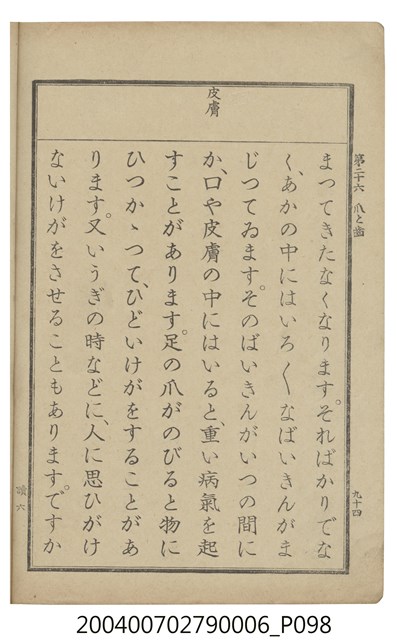 第二十六 爪と齒
九十四
皮膚
まつてきたなくなります。そればかりでな
く、あかの中にはいろ〳〵なばいきんがま
じつてゐます。そのばいきんがいつの間に
か、口や皮膚の中にはいると、重い病氣を起
すことがあります。足の爪がのびると物に
ひつかゝつて、ひどいけがをすることがあ
ります。又いうぎの時などに、人に思ひがけ
ないけがをさせることもあります。ですか
讀六
200400702790006_P098